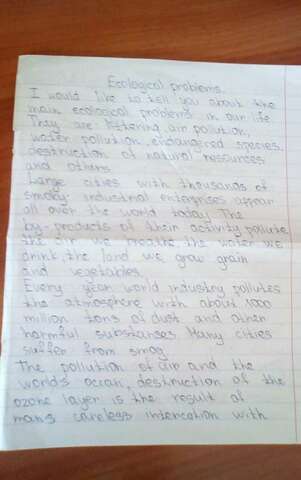 Ecological problems.
I would like to tell you about the
main ecological problems in our life
They are littering, air pollution,
water pollution, endangered species,
destruction of natural resources
and others.
Large cities with thousands of
smoky industrial enterprises appear
all over the world today. The
by-products of their activity pollute
the air we breathe the water we
drink, the land we grow grain
and vegetables.
Every year world industry pollutes
the atmosphere with about 1000
million tons of dust and other
harmful substanses. Many cities
suffer from smog
The pollution of air and the
world's ocean, destruction of the
ozone layer is the result of
mans careless intercation with